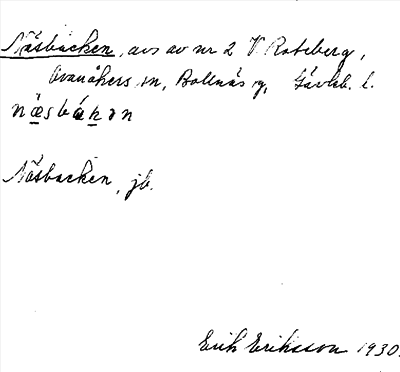 Näsbacken, avs av nr 2 V Roteberg,
Ovanåkers sn, Bollnäs tg, Gävleb. l.
næsbákən
Näsbacken, jb.
Erik Eriksson 1930.